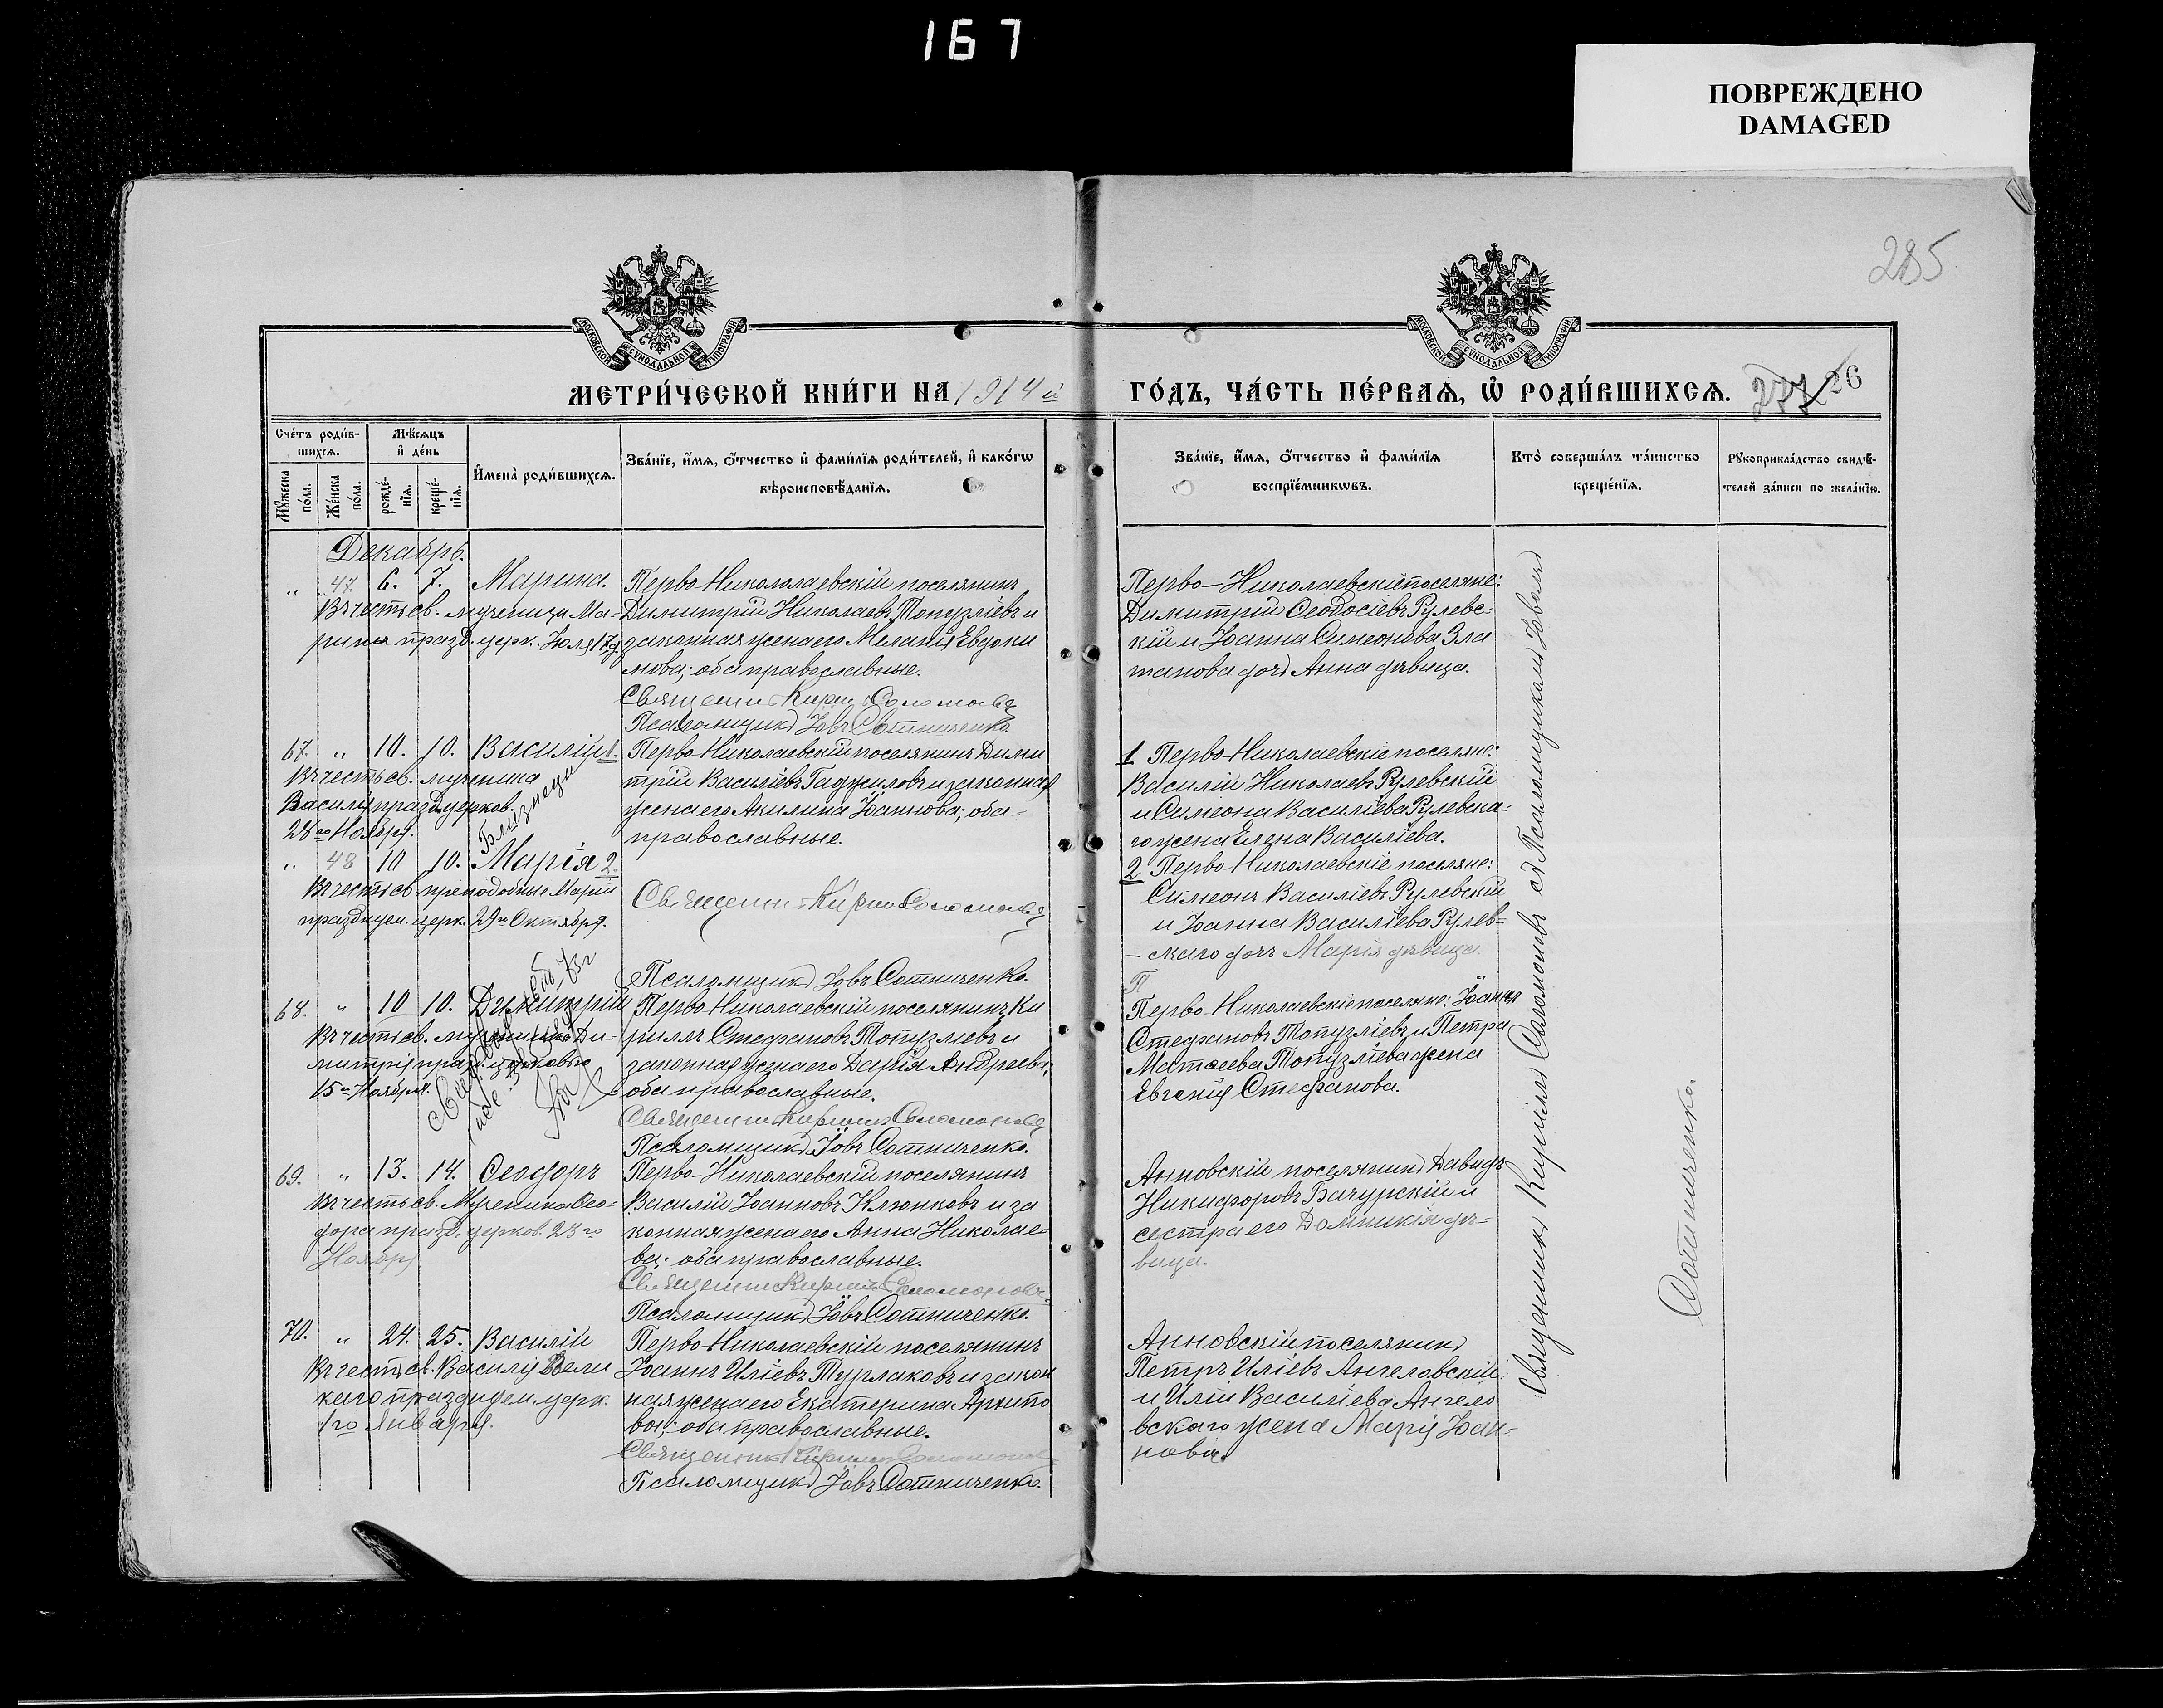 167
ПОВРЕЖДЕНО
DAMAGED
285
МОСКОВСКОЙ СѴНОДАЛЬНОЙ ТИПОГРАФІИ
МОСКОВСКОЙ СѴНОДАЛЬНОЙ ТИПОГРАФІИ
МЕТРИ́ЧЕСКОЙ КНИ́ГИ НА 1914 й
ГО́ДЪ, ЧА́СТЬ ПЕ́РВАѦ, Ѽ РОДИ́ВШИХСѦ.
277 26
Сче́тъ роди́в-
шихсѧ.
Мѣ́сѧцъ
и҆ де́нь
Мꙋ́жеска по́ла.
Же́нска по́ла.
рожде́-нїѧ.
креще́-нїѧ.
И҆мена̀ роди́вшихсѧ.
Зва́нїе, и҆́мѧ, ѻ҆́тчество и҆ фами́лїѧ роди́телей, и҆ како́гѡ
вѣроисповѣ́данїѧ.
Зва́нїе, и҆́мѧ, ѻ҆́тчество и҆ фами́лїѧ
воспрїе́мникѡвъ.
Кто̀ соверша́лъ та́инство
креще́нїѧ.
Рꙋкоприкла́дство свидѣ́-
телей за́писи по жела́нїю.
Декабрь.
" 47 6. 7. Марина.
Въ честь св. мученицы Ма-
рины празд. церк. Іюля 17 д.
Перво-Николаевскій поселянинъ
Димитрій Николаевъ Топузліевъ и
законная жена его Меланія Евдоки
мова; оба православные.
Священникъ Кириллъ Соломоновъ
Псаломщикъ Іовъ Сотниченко
Перво-Николаевскіе поселяне:
Димитрій Ѳеодосіевъ Рулевс-
кій и Іоанна Симеонова Зла
танова дочь Анна дѣвица.
67. " 10. 10. Василій 1.
Въ честь св. мученика
Василія празд. церков.
28го Ноября.
Близнецы
Перво-Николаевскій поселянинъ Дими
трій Василіевъ Гаджиловъ и законная
жена его Акилина Іоаннова; оба-
православные.
1 Перво-Николаевскіе поселяне:
Василій Николаевъ Рулевскій
и Симеона Василіева Рулевска-
го жена Елена Василіева.
" 48 10 10. Марія 2.
Въ честь св. преподобные Маріи
празднуем. церк. 29го Октября.
Священникъ Кириллъ Соломоновъ
Псаломщикъ Іовъ Сотниченко.
2 Перво-Николаевскіе поселяне:
Симеонъ Василіевъ Рулевскій
и Іоанна Василіева Рулев-
-скаго дочь Марія дѣвица.
П
68. " 10 10. Димитрій
Въ честь св. мученика Ди-
митрія празд. церковью
15го Ноября.
Перво-Николаевскій поселянинъ Ки
риллъ Стефановъ Топузліевъ и
законная жена его Дарія Андреева;
оба православные.
Священникъ Кириллъ Соломоновъ
Псаломщикъ Іовъ Сотниченко.
Перво-Николаевскіе поселяне: Іоаннъ
Стефановъ Топузліевъ и Петра
Матѳеева Топузліева жена
Евгенія Стефанова.
69. " 13. 14. Ѳеодоръ
Въ честь св. Мученика Ѳео-
дора празд. церков. 23го
Ноября
Перво-Николаевскій поселянинъ
Василій Іоанновъ Клюнковъ и за
конная жена его Анна Николае-
ва; оба православные.
Священникъ Кириллъ Соломоновъ
Псаломщикъ Іовъ Сотниченко.
Анновскій поселянинъ Давидъ
Никифоровъ Бачурскій и
сестра его Домникія дѣ-
вица.
70. " 24. 25. Василій
Въ честь св. Василія Вели
каго празднуем. церк.
1го Января.
Перво-Николаевскій поселянинъ
Іоаннъ Иліевъ Турлаковъ и закон
ная жена его Екатерина Архипо
ва; оба православные.
Священникъ Кириллъ Соломоновъ
Псаломщикъ Іовъ Сотниченко.
Анновскій поселянинъ
Петръ Иліевъ Ангеловскій
и Иліи Василіева Ангело
вскаго жена Марія Іоан-
нова.
Священникъ Кириллъ Соломоновъ съ Псаломщикомъ Іовомъ
Сотниченко.